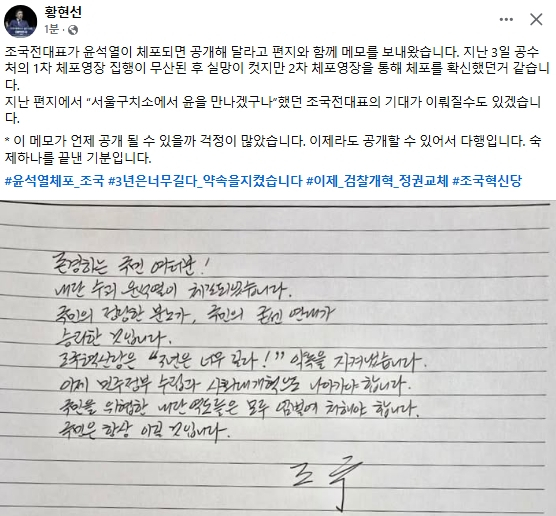 황현선
1분 ·
조국전대표가 윤석열이 체포되면 공개해 달라고 편지와 함께 메모를 보내왔습니다. 지난 3일 공수
처의 1차 체포영장 집행이 무산된 후 실망이 컷지만 2차 체포영장을 통해 체포를 확신했던거 같습니
다.
지난 편지에서 “서울구치소에서 윤을 만나겠구나”했던 조국전대표의 기대가 이뤄질수도 있겠습니
다.
* 이 메모가 언제 공개 될 수 있을까 걱정이 많았습니다. 이제라도 공개할 수 있어서 다행입니다. 숙
제하나를 끝낸 기분입니다.
#윤석열체포_조국 #3년은너무길다_약속을지켰습니다 #이제_검찰개혁_정권교체 #조국혁신당
존경하는 국민 여러분!
내란 수괴 윤석열이 체포되었습니다.
국민의 정당한 분노가, 국민의 굳센 연대가
승리한 것입니다.
조국혁신당은 “3년은 너무 길다!” 약속을 지켜냈습니다.
이제 민주정부 수립과 사회대개혁으로 나아가야 합니다.
국민을 위협한 내란 역도들은 모두 엄벌에 처해야 합니다.
국민은 항상 이길 것입니다.
조국